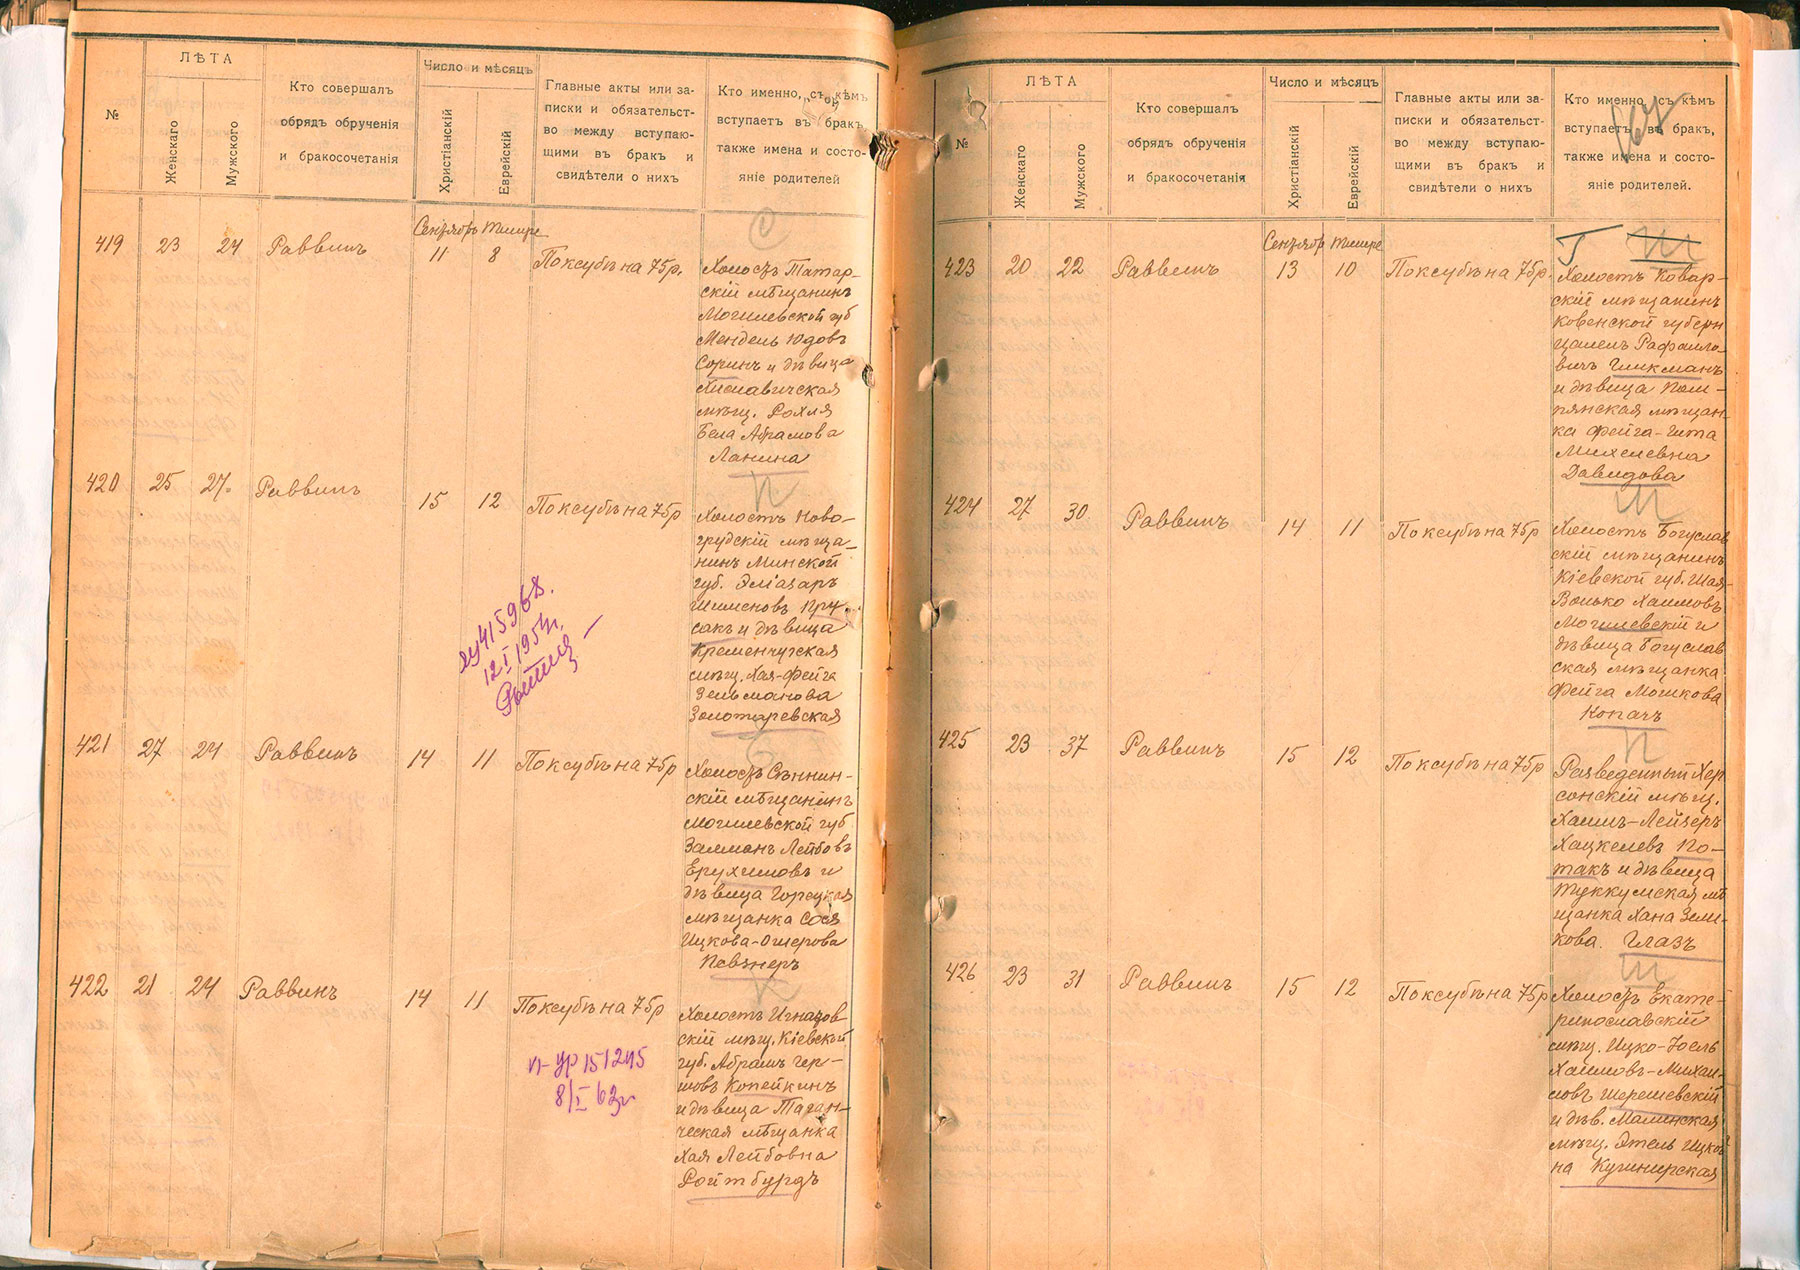 №
ЛѢТА
Женскаго
Мужского
Кто совершалъ
обрядъ обрученія
и бракосочетанія
Число и мѣсяцъ
Христіанскій
Еврейскій
Главные акты или за-
писки и обязательст-
во между вступаю-
щими въ бракъ и
свидѣтели о нихъ
Кто именно, съ кѣмъ
вступаетъ въ бракъ,
также имена и состо-
яніе родителей
Сентябрь Тишре
419 23 24 Раввинъ 11 8 По ксубѣ на 75 р.
С
Холостъ Татар-
скій мѣщанинъ
Могилевской губ
Мендель Юдовъ
Соринъ и дѣвица
Хиславичская
мѣщ. Рохля
Бела Абрамова
Ланина
420 25 27 Раввинъ 15 12 По ксубѣ на 75 р
П
Холостъ Ново-
грудскій мѣща-
нинъ Минской
губ. Эліазаръ
Шименовъ Пру-
сакъ и дѣвица
Кременчугская
мѣщ. Хая-Фейга
Зельманова
Золотаревская
415968.
12 I 1954 г.
421 27 24 Раввинъ 14 11 По ксубѣ на 75 р
Е
Холостъ Сѣннин-
скій мѣщанинъ
Могилевской губ
Залманъ Лейбовъ
Ерухимовъ и
дѣвица Горецкая
мѣщанка Сося
Ицкова-Ошерова
Певзнеръ
422 21 24 Раввинъ 14 11 По ксубѣ на 75 р
К
Холостъ Игнатов
скій мѣщ. Кіевской
губ. Абрамъ Гер-
шовъ Копейкинъ
и дѣвица Таган-
ческая мѣщанка
Хая Лейбовна
Ройтбурдъ
151245
8/I 63 г
№
ЛѢТА
Женскаго
Мужского
Кто совершалъ
обрядъ обрученія
и бракосочетанія
Число и мѣсяцъ
Христіанскій
Еврейскій
Главные акты или за-
писки и обязательст-
во между вступаю-
щими въ бракъ и
свидѣтели о нихъ
Кто именно, съ кѣмъ
вступаетъ въ бракъ,
также имена и состо-
яніе родителей.
Сентябр Тишре
423 20 22 Раввинъ 13 10 По ксубѣ на 75 р.
Г Ш
Холостъ Ковар-
скій мѣщанинъ
Ковенской губерн
Цалелъ Рафаило-
вичъ Гликманъ
и дѣвица Помп-
янская мѣщан-
ка Фейга-Гита
Михелевна
Давидова
424 27 30 Раввинъ 14 11 По ксубѣ на 75 р
М
Холостъ Богуслав
скій мѣщанинъ
Кіевской губ. Шая-
Волько Хаимовъ
Могилевскій и
дѣвица Богуслав
ская мѣщанка
Фейга Мошкова
Копачъ
425 23 37 Раввинъ 15 12 По ксубѣ на 75 р
П
Разведенный Хер
сонскій мѣщ.
Хаимъ-Лейзеръ
Хацкелевъ По-
такъ и дѣвица
Туккумская мѣ
щанка Хана Зели-
кова. Глазъ
426 23 31 Раввинъ 15 12 По ксубѣ на 75 р
Ш
Холостъ Екате-
ринославскій
мѣщ. Ицко-Іоель
Хаимовъ-Михаи-
ловъ Шерешевскій
и дѣв. Малинская
мѣщ. Этель Ицков
на Кушнирская